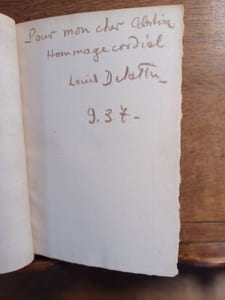 Pour mon cher Célestin
Hommage cordial
Louis Delattre
9.3.7.-